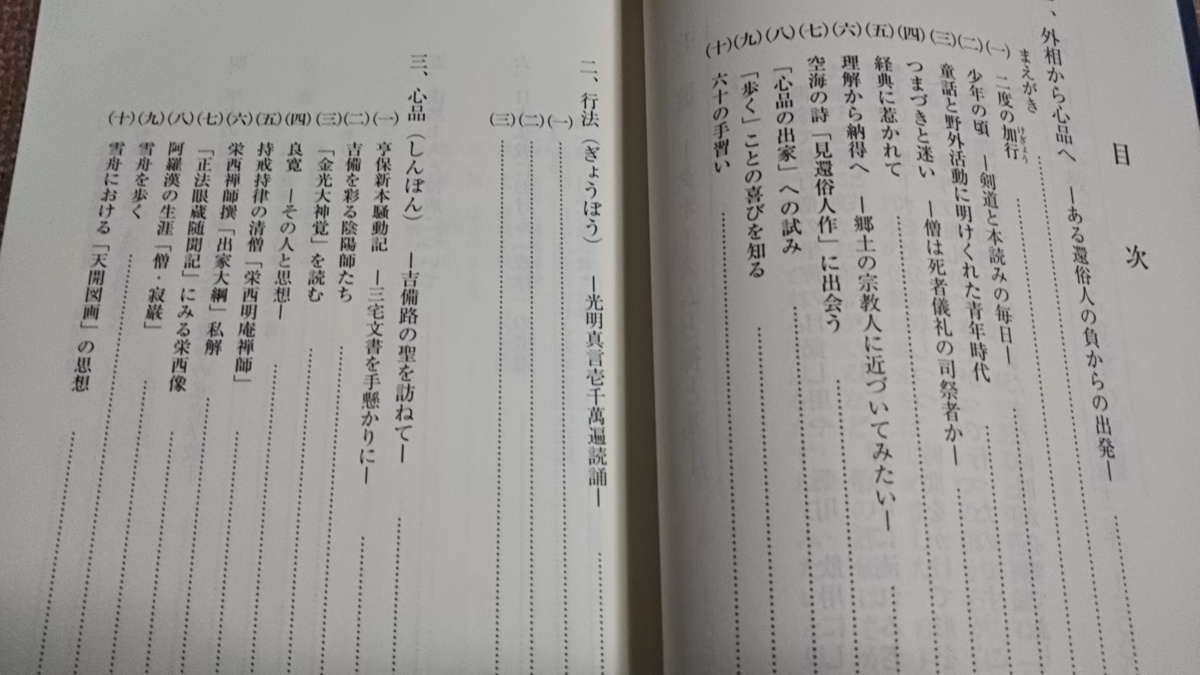 目次
一、外相から心品へ ―ある還俗人の負からの出発―
まえがき
(一) 二度の加行
けぎょう
(二) 少年の頃 ―剣道と本読みの毎日―
(三) 童話と野外活動に明けくれた青年時代
(四) つまづきと迷い ―僧は死者儀礼の司祭者か―
(五) 経典に惹かれて
(六) 理解から納得へ ―郷土の宗教人に近づいてみたい―
(七) 空海の詩「見還俗人作」に出会う
(八) 「心品の出家」への試み
(九) 「歩く」ことの喜びを知る
(十) 六十の手習い
二、行法(ぎょうぼう) ―光明真言壱千萬遍読誦―
(一)
(二)
(三)
三、心品(しんぼん) ―吉備路の聖を訪ねて―
(一) 亨保新本騒動記 ―三宅文書を手懸かりに―
(二) 吉備を彩る陰陽師たち
(三) 「金光大神覚」を読む
(四) 良寛 ―その人と思想―
(五) 持戒持律の清僧「栄西明庵禅師」
(六) 栄西禅師撰「出家大綱」私解
(七) 「正法眼蔵随聞記」にみる栄西像
(八) 阿羅漢の生涯「僧・寂厳」
(九) 雪舟を歩く
(十) 雪舟における「天開図画」の思想